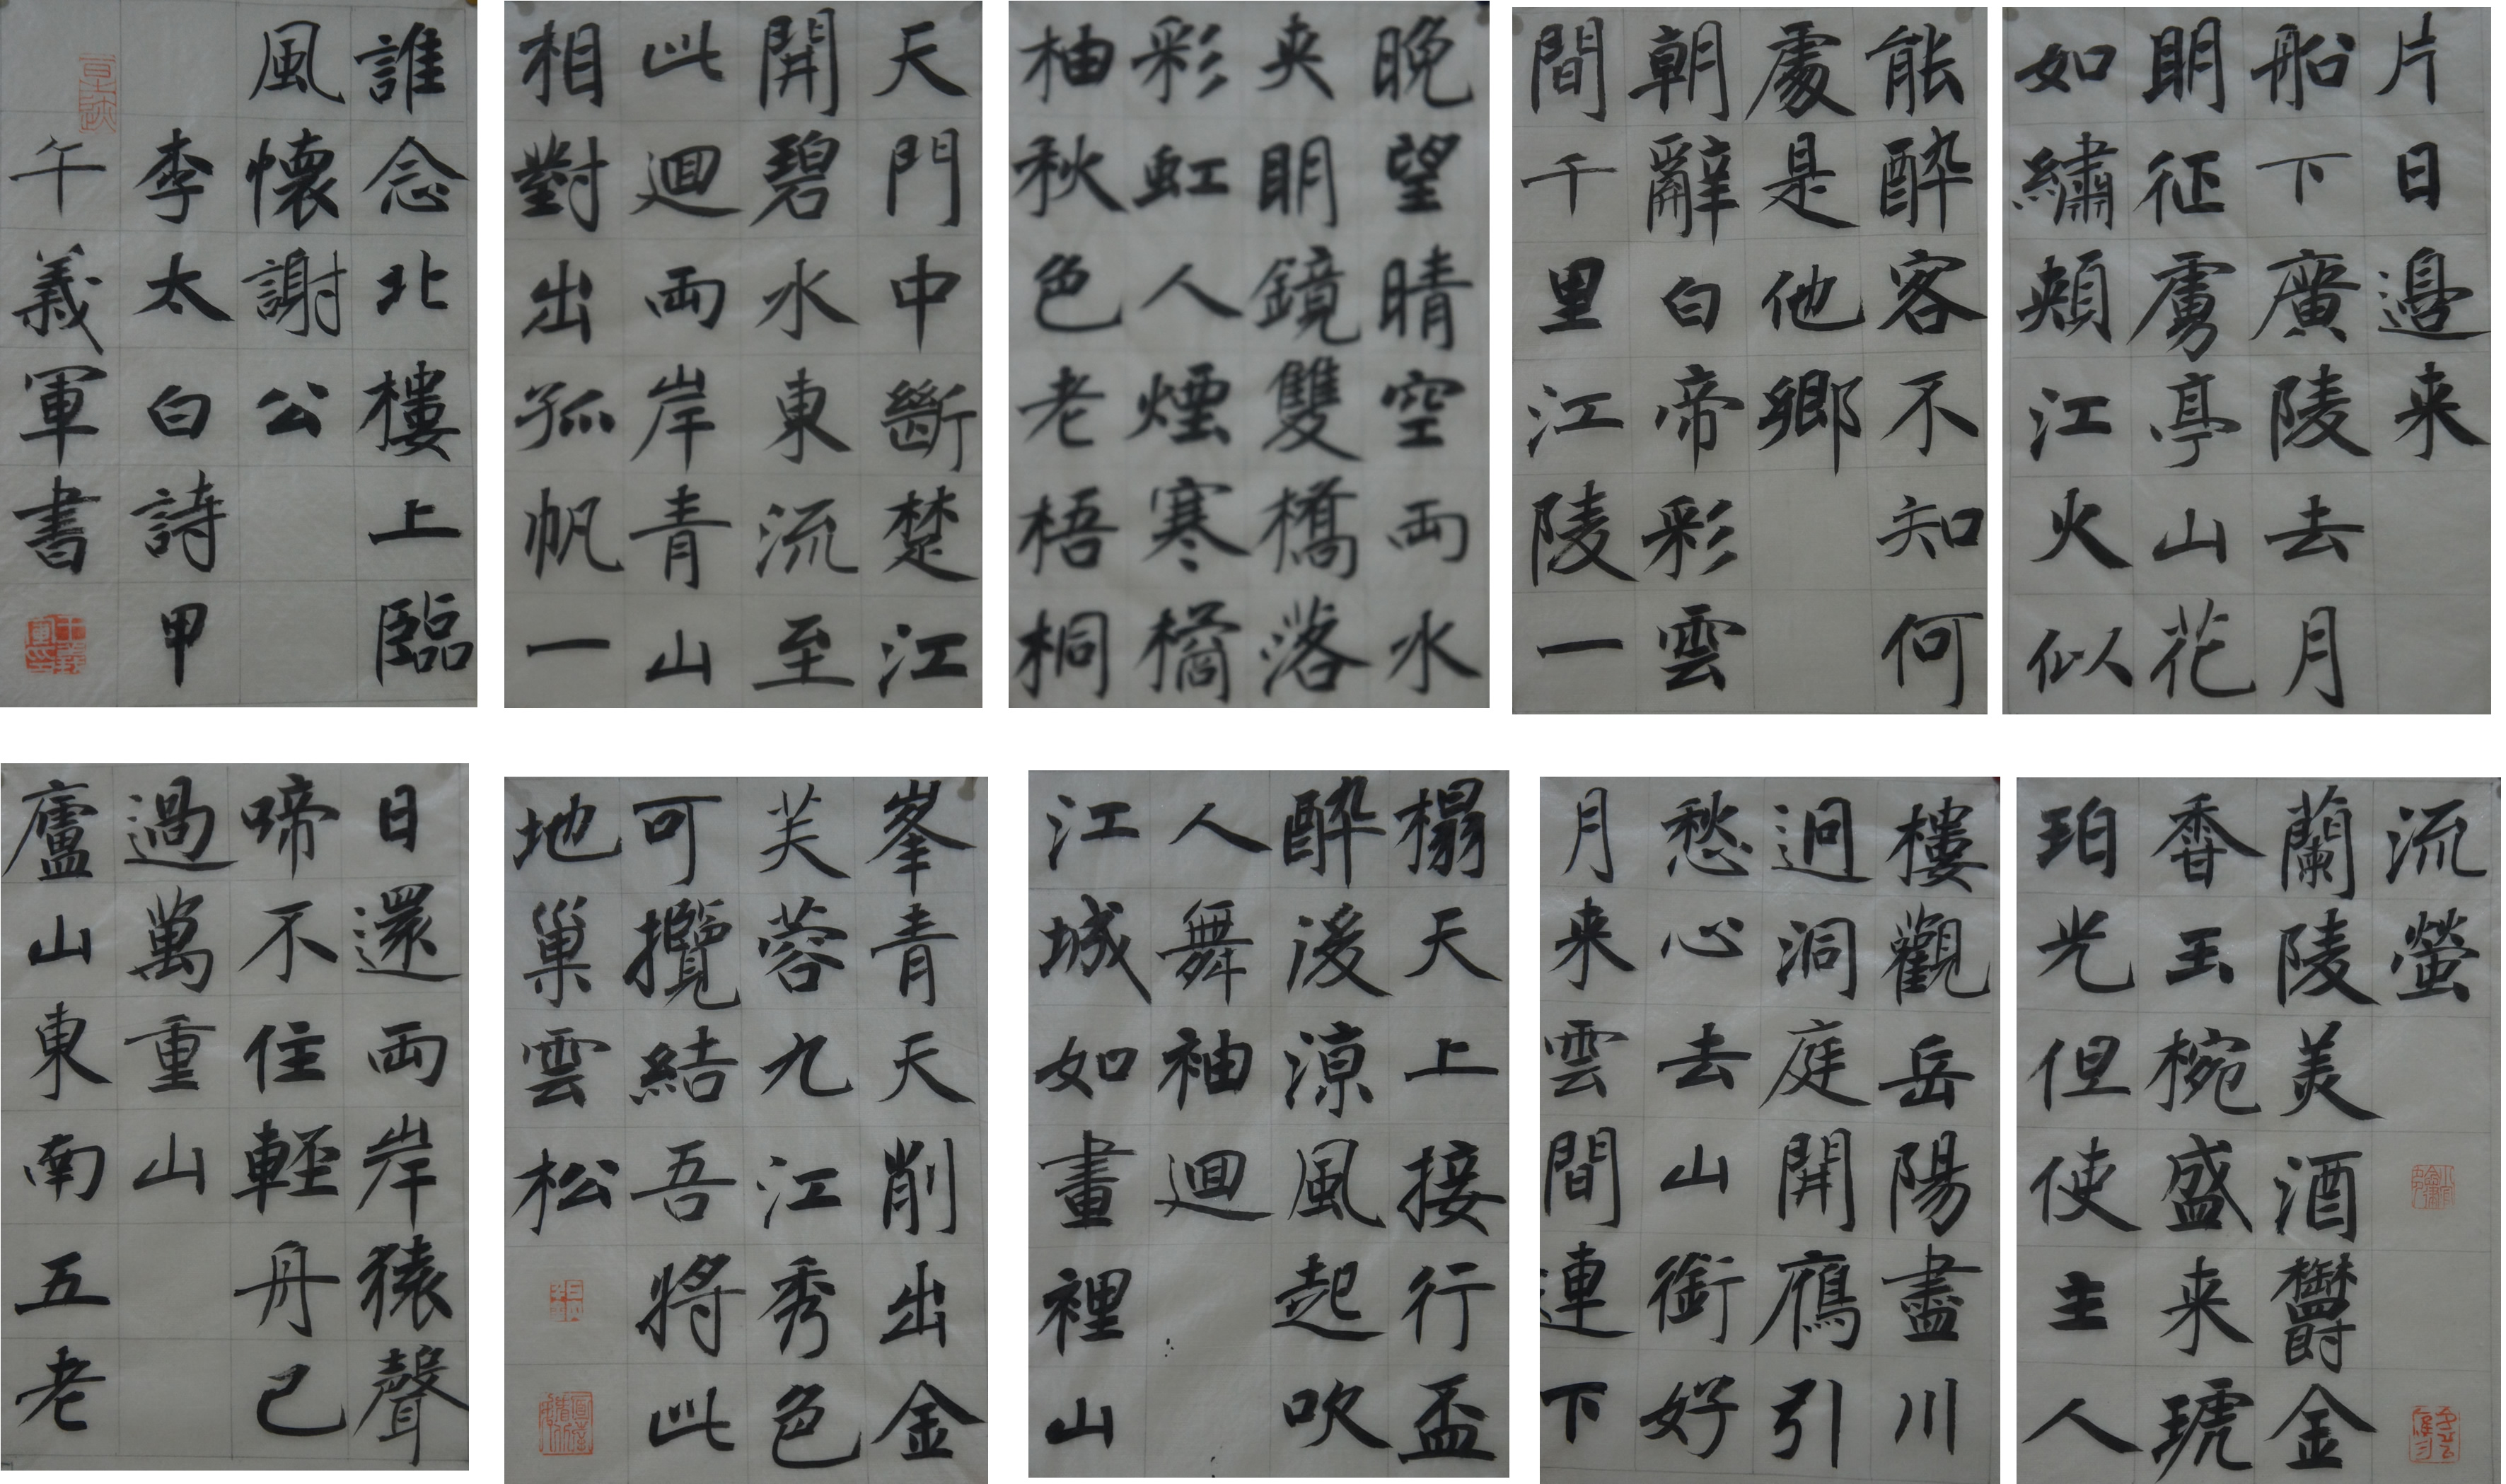 片日邊来
船下廣陵去月
明征虜亭山花
如繡頰江火似
能醉客不知何
處是他鄉
朝辭白帝彩雲
間千里江陵一
晚望晴空両水
夾明鏡雙橋落
彩虹人煙寒橘
柚秋色老梧桐
天門中斷楚江
開碧水東流至
此迴両岸青山
相對出孤帆一
誰念北樓上臨
風懷謝公
李太白詩甲
午義軍書
流螢
蘭陵美酒鬱金
香玉椀盛来琥
珀光但使主人
樓觀岳陽盡川
迥洞庭開鴈引
愁心去山銜好
月来雲間連下
榻天上接行盃
醉後涼風起吹
人舞袖迴
江城如畫裡山
峯青天削出金
芙蓉九江秀色
可攬結吾將此
地巢雲松
日還両岸猿聲
啼不住輕舟已
過萬重山
廬山東南五老